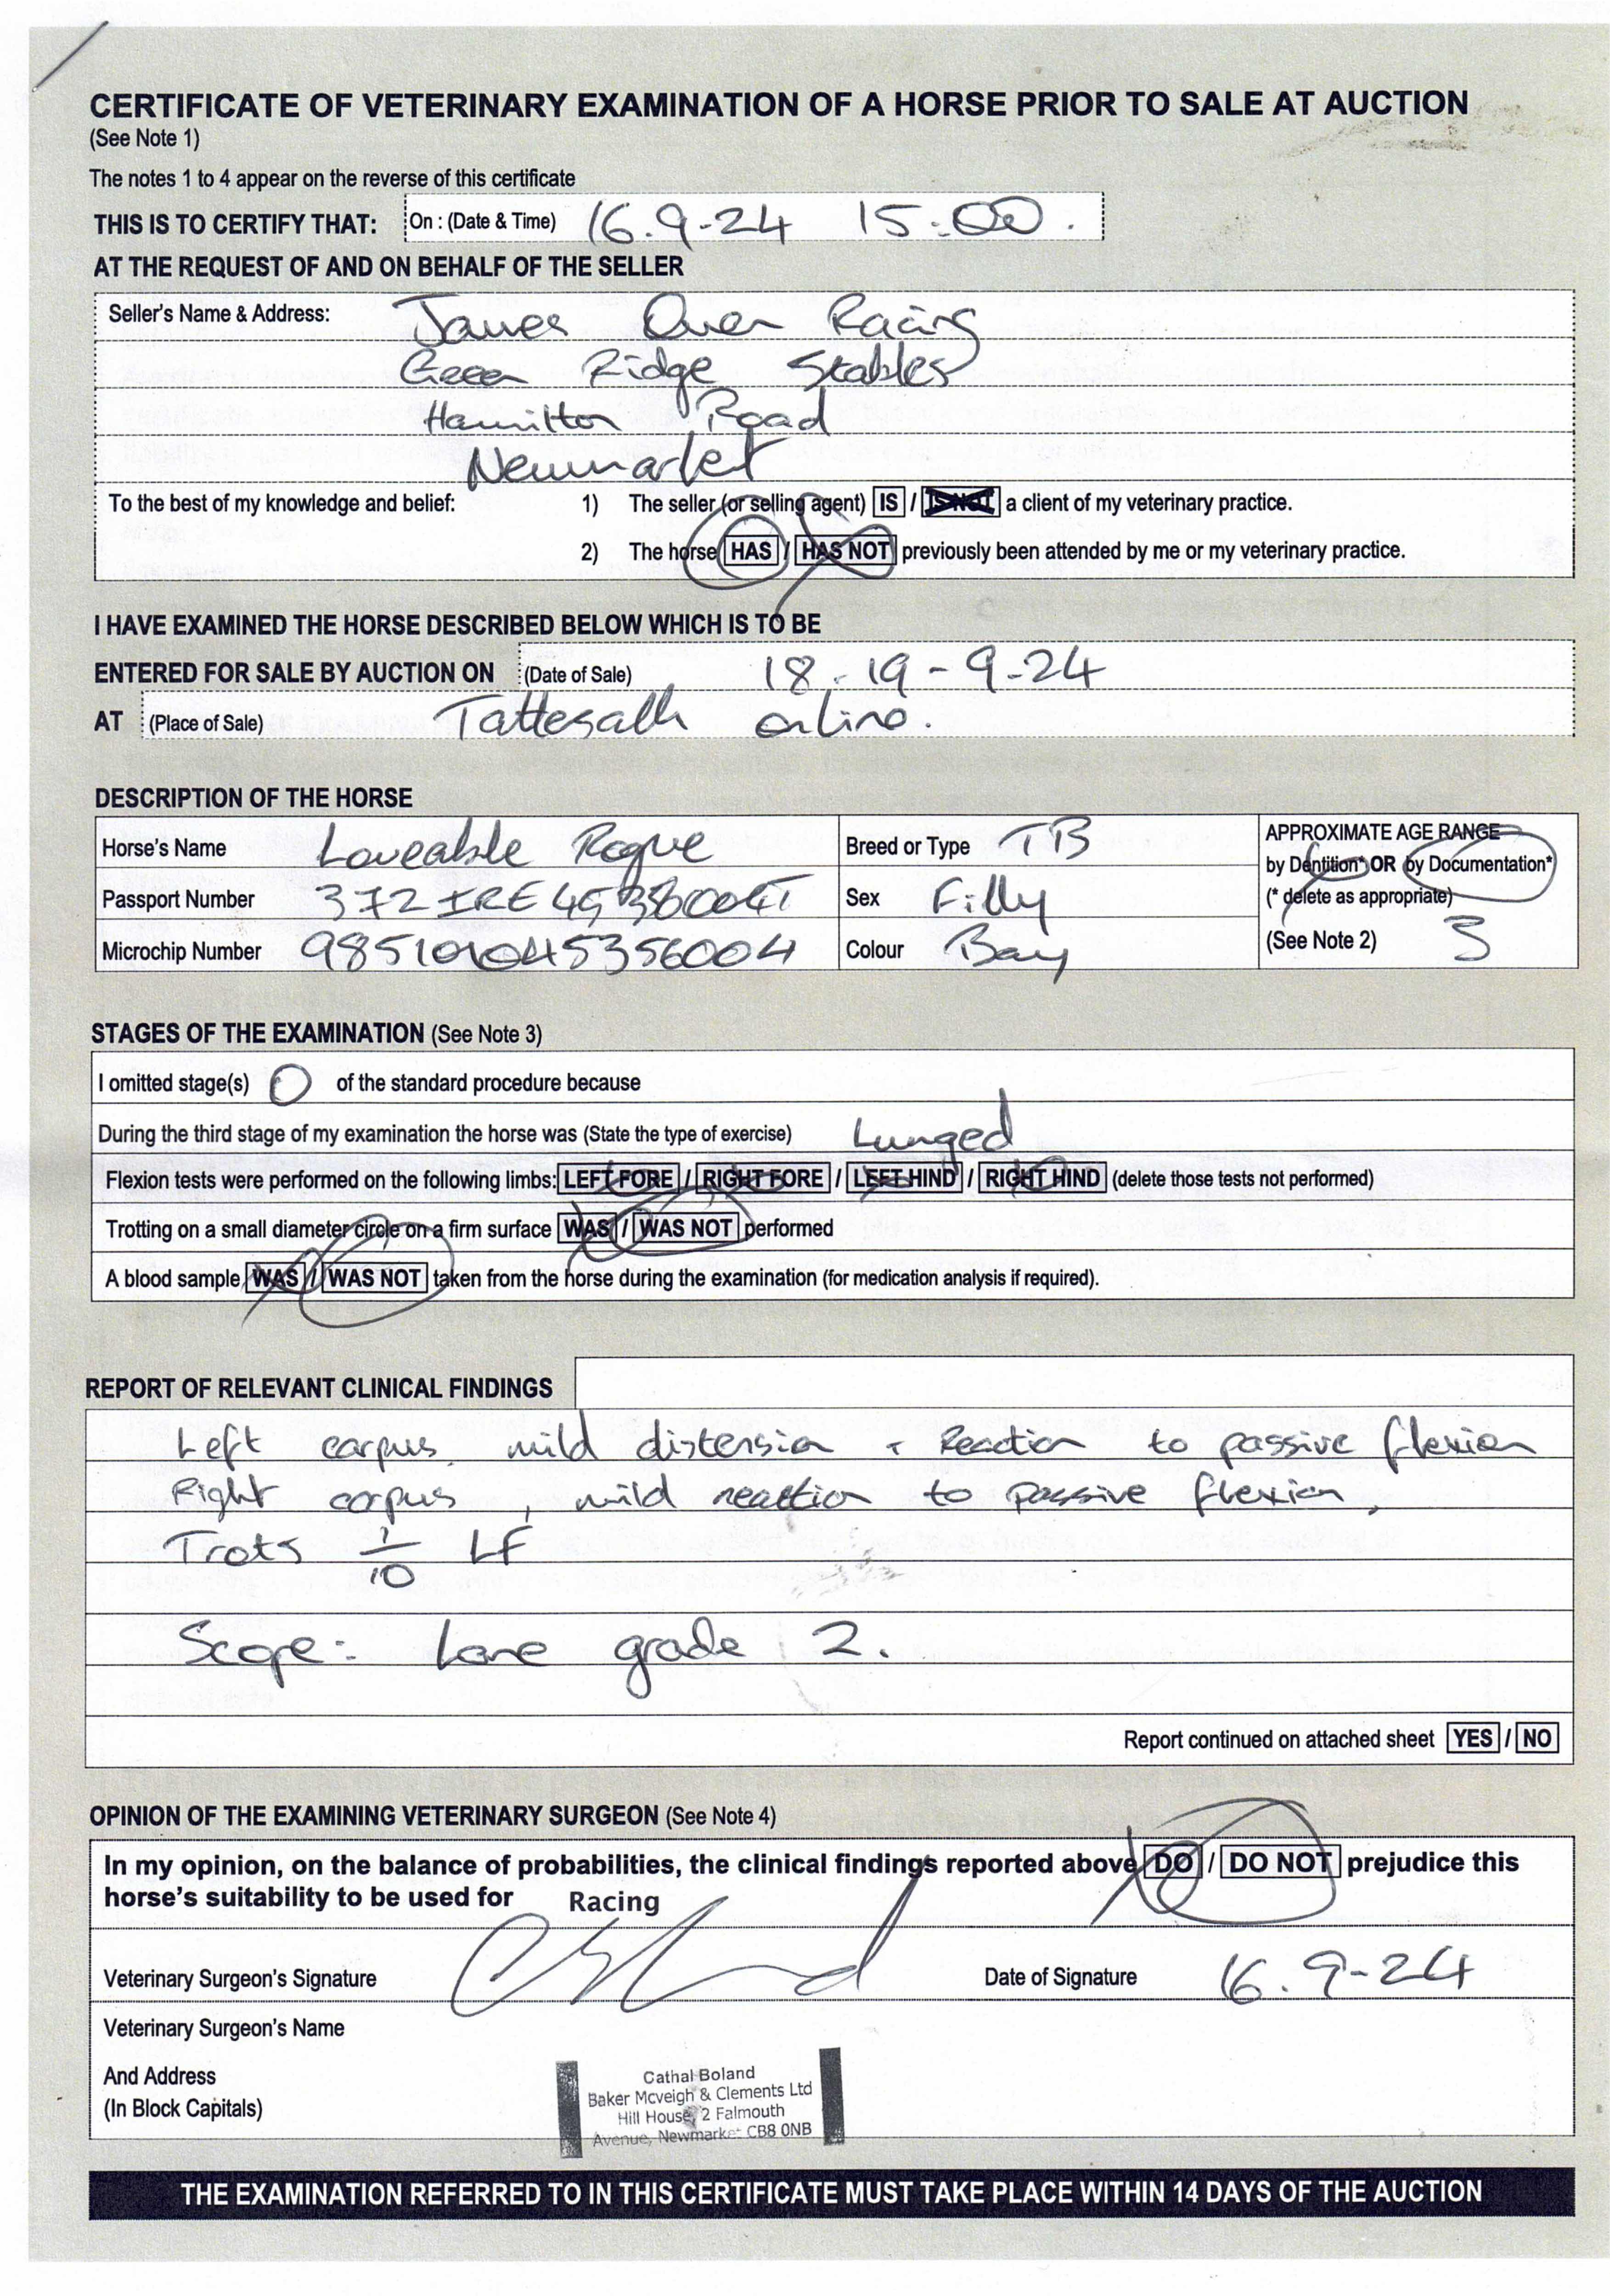 CERTIFICATE OF VETERINARY EXAMINATION OF A HORSE PRIOR TO SALE AT AUCTION
(See Note 1)
The notes 1 to 4 appear on the reverse of this certificate
THIS IS TO CERTIFY THAT: On : (Date & Time) 16.9-24 15:00.
AT THE REQUEST OF AND ON BEHALF OF THE SELLER
Seller's Name & Address: James Owen Racing
Green Ridge Stables
Hamilton Road
Newmarket
To the best of my knowledge and belief: 1) The seller (or selling agent) IS / IS NOT a client of my veterinary practice.
2) The horse HAS / HAS NOT previously been attended by me or my veterinary practice.
I HAVE EXAMINED THE HORSE DESCRIBED BELOW WHICH IS TO BE
ENTERED FOR SALE BY AUCTION ON (Date of Sale) 18-19-9-24
AT (Place of Sale) Tattesalls online.
DESCRIPTION OF THE HORSE
Horse's Name Loveable Rogue Breed or Type TB APPROXIMATE AGE RANGE
by Dentition* OR by Documentation*
Passport Number Sex Filly (* delete as appropriate)
Microchip Number Colour Bay (See Note 2) 3
STAGES OF THE EXAMINATION (See Note 3)
I omitted stage(s) 0 of the standard procedure because
During the third stage of my examination the horse was (State the type of exercise) Lunged
Flexion tests were performed on the following limbs: LEFT FORE / RIGHT FORE / LEFT HIND / RIGHT HIND (delete those tests not performed)
Trotting on a small diameter circle on a firm surface WAS / WAS NOT performed
A blood sample WAS / WAS NOT taken from the horse during the examination (for medication analysis if required).
REPORT OF RELEVANT CLINICAL FINDINGS
Left carpus mild distension + Reaction to passive flexion
Right carpus, mild reaction to passive flexion,
Trots 1/10 LF
Scope: Lane grade 2.
Report continued on attached sheet YES / NO
OPINION OF THE EXAMINING VETERINARY SURGEON (See Note 4)
In my opinion, on the balance of probabilities, the clinical findings reported above DO / DO NOT prejudice this
horse's suitability to be used for Racing
Veterinary Surgeon's Signature Date of Signature 16.9-24
Veterinary Surgeon's Name
And Address
(In Block Capitals)
Cathal Boland
Baker Mcveigh & Clements Ltd
Hill House, 2 Falmouth
Avenue, Newmarket CB8 0NB
THE EXAMINATION REFERRED TO IN THIS CERTIFICATE MUST TAKE PLACE WITHIN 14 DAYS OF THE AUCTION